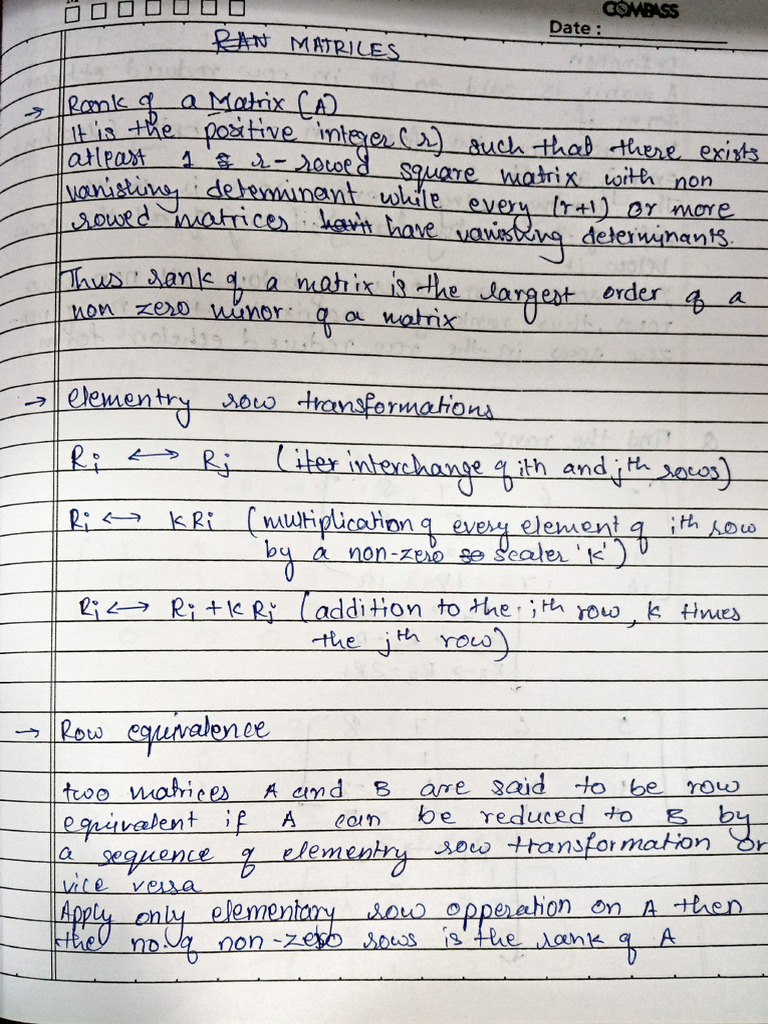 COMPASS
Date :
RAN MATRICES
→ Rank of a Matrix (A)
It is the positive integer (r) such that there exists
atleast 1 r-rowed square matrix with non
vanisting determinant while every (r+1) or more
rowed matrices havit have vanisting determinants.
Thus rank of a matrix is the largest order of a
non zero minor of a matrix
→ elementry row transformations
Ri ↔ Rj (iter interchange of ith and jth rows)
Ri ↔ KRi (multiplication of every element of ith row
by a non-zero so scaler 'k')
Ri ↔ Ri + K Rj (addition to the ith row, k times
the jth row)
→ Row equivalence
two matrices A and B are said to be row
equivalent if A can be reduced to B by
a sequence of elementry row transformation or
vice versa
Apply only elementary row opperation on A then
the no. of non-zero rows is the rank of A